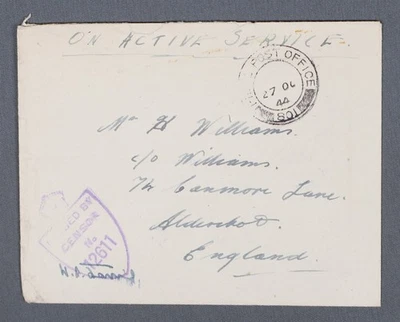 ON ACTIVE SERVICE
POST OFFICE
27 OC
44
Mr H Williams.
c/o Williams.
Canmore Lane.
Aldershot.
England.
ED BY
CENSOR
No
12611